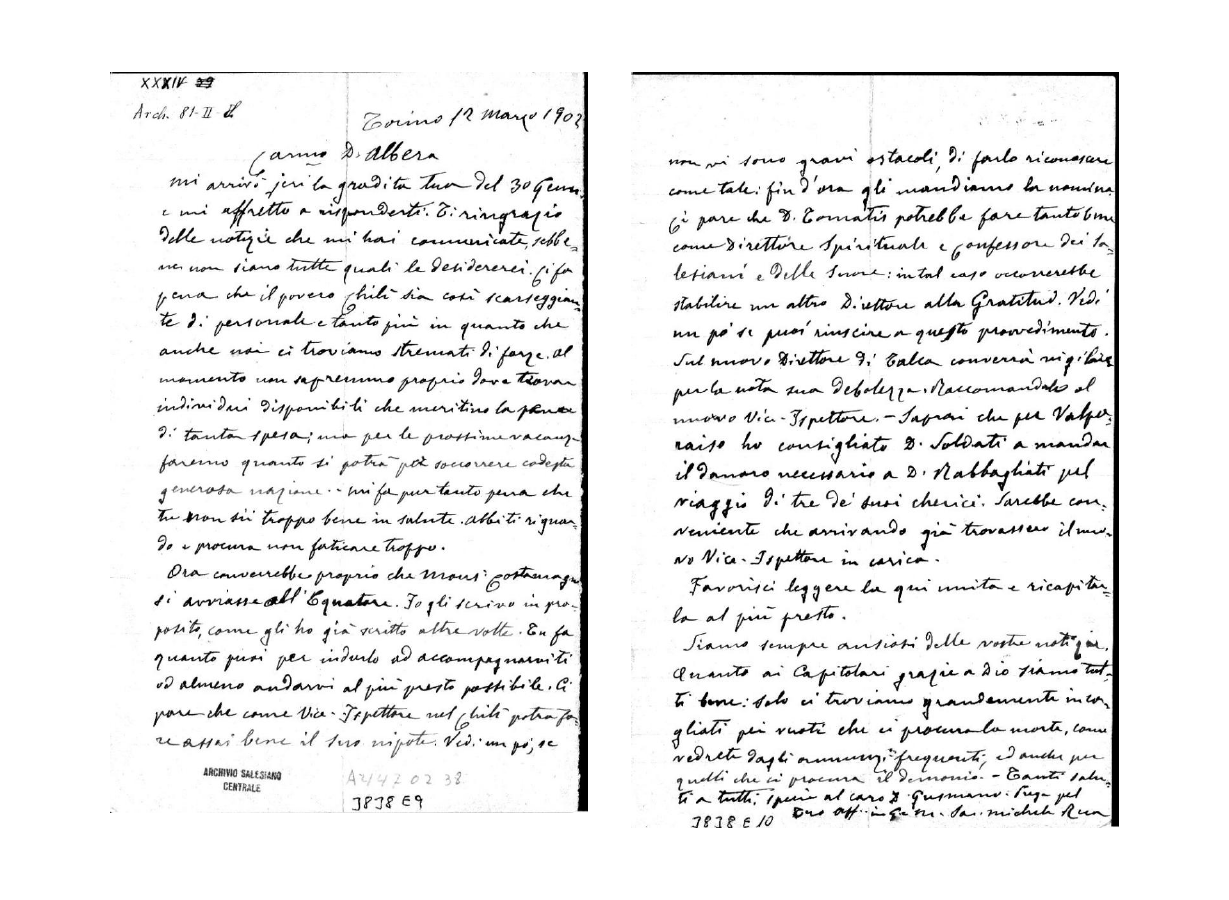 XXXIV 29
Arch. 81-II-
Torino 12 Marzo 1902
Carmo D. Albera
mi arrivò jeri la gradita tua del 30 Genn.
e mi affretto a risponderti. Ti ringrazio
delle notizie che mi hai comunicate, sebbe=
ne non siano tutte quali le desidererei. Ci fa
pena che il povero Chilì sia così scarseggian=
te di personale e tanto più in quanto che
anche noi ci troviamo stremati di forze. Al
momento non sapremmo proprio dove trovare
individui disponibili che meritino la pena
di tanta spesa; ma per le prossime vacanze
faremo quanto si potrà per soccorrere codesta
generosa nazione. - Mi fa pur tanto pena che
tu non sii troppo bene in salute. Abbiti riguar=
do e procura non faticare troppo.
Ora converrebbe proprio che Mons. Costamagna
si avviasse all'Equatore. Io gli scrivo in pro=
posito, come gli ho già scritto altre volte. Tu fa
quanto puoi per indurlo ad accompagnarviti
od almeno andarvi al più presto possibile. Ci
pare che come Vice-Ispettore nel Chilì potrà fa=
re assai bene il suo nipote. Vedi un pò, se
ARCHIVIO SALESIANO
CENTRALE
A4470238
3838 E9
non vi sono gravi ostacoli, di farlo riconoscere
come tale: fin d'ora gli mandiamo la nomina.
Ci pare che D. Tomatis potrebbe fare tanto bene
come Direttore Spirituale e Confessore dei Sa=
lesiani e delle Suore: in tal caso occorrerebbe
stabilire un altro Direttore alla Gratitud. Vedi
un pò se puoi riuscire a questo provvedimento.
Sul nuovo Direttore di Talca converrà vigilare
per la nota sua debolezza. Raccomandalo al
nuovo Vice-Ispettore. - Saprai che per Valpa=
raiso ho consigliato D. Soldati a mandar
il danaro necessario a D. Rabbagliati pel
viaggio di tre de' suoi cherici. Sarebbe con=
veniente che arrivando già trovassero il nuo=
vo Vice-Ispettore in carica.
Favorisci leggere la qui unita e ricapitar=
la al più presto.
Siamo sempre ansiosi delle vostre notizie.
Quanto ai Capitolari grazie a Dio siamo tut=
ti bene: solo ci troviamo grandemente inca=
gliati pei vuoti che ci procura la morte, come
vedrete dagli annunzi frequenti, ed anche per
quelli che ci procura il demonio. - Tanti salu=
ti a tutti, specie al caro D. Gusmano. Prega pel
Tuo aff. in G. e M. Sac. Michele Rua
3838 E 10